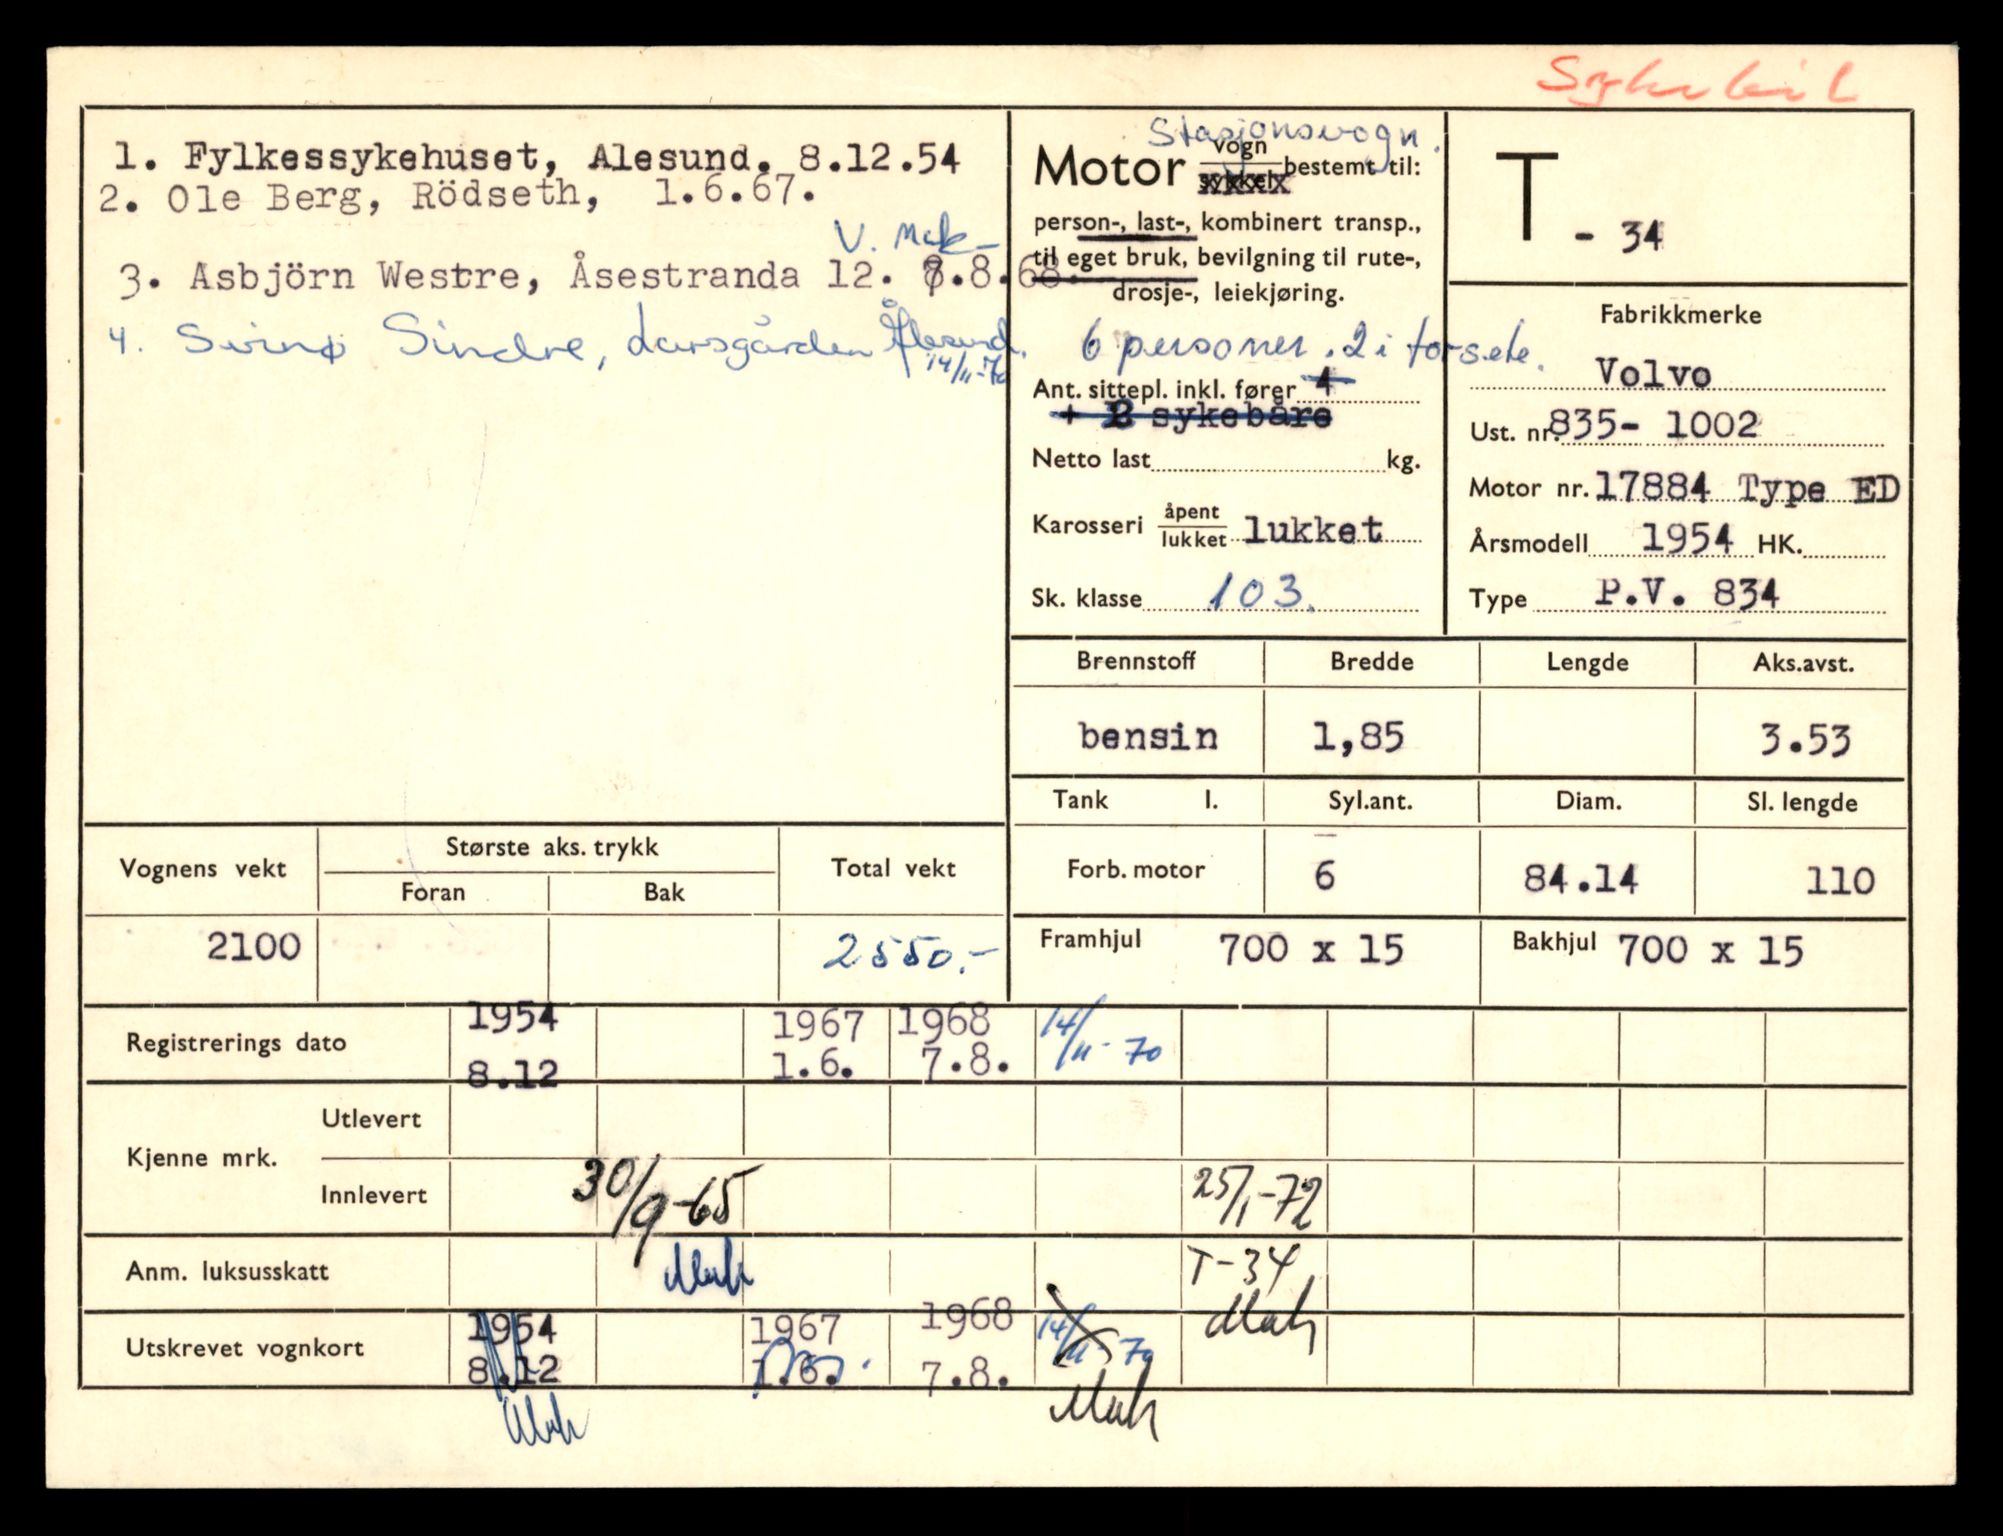 Sykebil
1. Fylkessykehuset, Alesund. 8.12.54
2. Ole Berg, Rödseth, 1.6.67.
V. Mek
3. Asbjörn Westre, Åsestranda 12. 7.8.68.
4. Svinø Sindre, Larsgården Ålesund.
14/11-70
Stasjonsvogn.
Motor vogn sykkel bestemt til:
person-, last-, kombinert transp.,
til eget bruk, bevilgning til rute-,
drosje-, leiekjøring.
6 personer. 2 i forsete.
Ant. sittepl. inkl. fører 4
+ 2 sykebåre
Netto last kg.
Karosseri åpent lukket lukket
Sk. klasse 103.
T - 34
Fabrikkmerke
Volvo
Ust. nr. 835- 1002
Motor nr. 17884 Type ED
Årsmodell 1954 HK.
Type P.V. 834
Brennstoff Bredde Lengde Aks.avst.
bensin 1,85 3.53
Tank l. Syl.ant. Diam. Sl. lengde
Forb. motor 6 84.14 110
Framhjul 700 x 15 Bakhjul 700 x 15
Vognens vekt Største aks. trykk Total vekt
Foran Bak
2100 2550.-
Registrerings dato 1954 8.12 1967 1.6. 1968 7.8. 14/11-70
Kjenne mrk. Utlevert
Innlevert 30/9-65 25/1-72
Anm. luksusskatt T-34
Utskrevet vognkort 1954 8.12 1967 1.6. 1968 7.8. 14/11-70